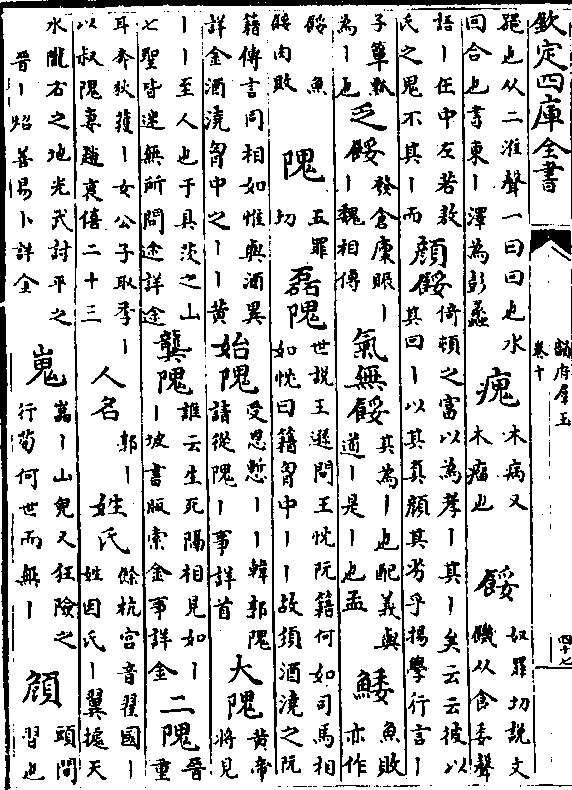 欽定四庫全書
韻府羣玉
卷十
四十七
器也从匚淮聲一曰回也水
回合也書東丨澤為彭蠡
瘣 木病又
木瘤也
餒 奴罪切說文
饑从食委聲
語丨在中左若敖
氏之鬼不其丨而
顔餒 倚頓之富以為孝丨其丨矣云云彼以
其回丨以其真顔其劣乎揚學行言丨
子簞瓢
為丨也
乏餒 發倉廩賑丨
丨魏相傳
氣無餒 其為丨也配義與
道丨是丨也孟
鯘 魚敗
亦作
餒魚
餒肉敗
隗 五罪
切
磊隗 世說王遜問王忱阮籍何如司馬相
如忱曰籍胷中丨丨故須酒澆之阮
籍傳言同相如惟與酒異
詳金酒澆胷中之丨丨黄
始隗 受恩慙丨丨韓郭隗
請從隗丨事詳首
大隗 黄帝
將見
丨丨至人也于具茨之山
七聖皆迷無所問途詳途
龔隗 誰云生死隔相見如丨
丨坡書版索金事詳金
二隗 晉
重
耳奔狄獲丨女公子取季丨
以叔隗妻趙衰僖二十三
人名 郭丨
姓氏 餘杭宫音翟國丨
姓因氏丨翼據天
水隴右之地光武討平之
晉丨炤善陽卜詳金
嵬 嵩丨山皃又狂險之
行荀何世而無丨
頠 頭閑
習也